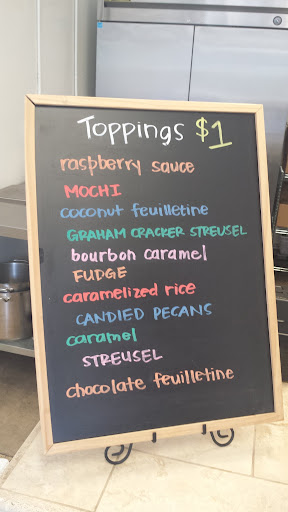 Toppings $1
raspberry sauce
MOCHI
coconut feuilletine
GRAHAM CRACKER STREUSEL
bourbon caramel
FUDGE
caramelized rice
CANDIED PECANS
caramel
STREUSEL
chocolate feuilletine